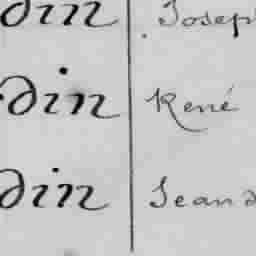 din Joseph
din René
din Jean